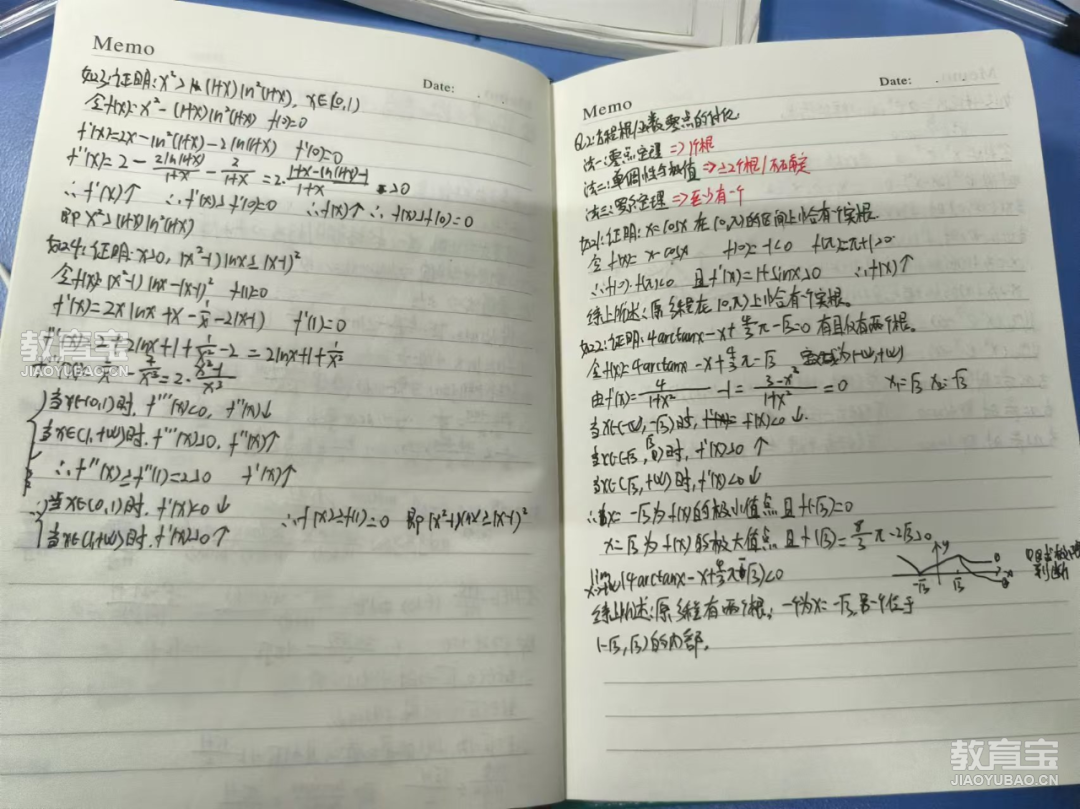 Memo
Date:
如23:证明: x²>(1+x)ln²(1+x), x∈(0,1)
令f(x)=x²-(1+x)ln²(1+x) f(0)=0
f'(x)=2x-ln²(1+x)-2ln(1+x) f'(0)=0
f''(x)=2-2ln(1+x)/(1+x)-2/(1+x)=2·(1+x-ln(1+x)-1)/(1+x)>0
∴f'(x)↑ ∴f'(x)>f'(0)=0 ∴f(x)↑ ∴f(x)>f(0)=0
即x²>(1+x)ln²(1+x)
如24:证明:x>0, (x²-1)lnx≥(x-1)²
令f(x)=(x²-1)lnx-(x-1)² f(1)=0
f'(x)=2xlnx+x-1/x-2(x-1) f'(1)=0
f''(x)=2+2lnx+1+1/x²-2=2lnx+1+1/x²
f'''(x)=2/x-2/x³=2·(x²-1)/x³
当x∈(0,1)时, f'''(x)<0, f''(x)↓
当x∈(1,+∞)时, f'''(x)>0, f''(x)↑
∴f''(x)≥f''(1)=2>0 f'(x)↑
∴当x∈(0,1)时, f'(x)<0↓
当x∈(1,+∞)时, f'(x)>0↑
∴f(x)≥f(1)=0 即(x²-1)lnx≥(x-1)²
Memo
Date:
Q2:方程根/函数零点的讨论
法一:零点定理⇒1个根
法二:单调性与极值⇒≥2个根/不确定
法三:罗尔定理⇒至少有一个
如21:证明: x=cosx 在(0,π)的区间上恰有一个实根
令f(x)=x-cosx f(0)=-1<0 f(π)=π+1>0
∴f(0)·f(π)<0 且f'(x)=1+sinx>0 ∴f(x)↑
综上所述:原方程在(0,π)上恰有一个实根。
如22:证明:4arctanx-x+4/3π-√3=0有且仅有两个根。
令f(x)=4arctanx-x+4/3π-√3 定义域为(-∞,+∞)
由f'(x)=4/(1+x²)-1=(3-x²)/(1+x²)=0 x₁=√3 x₂=-√3
当x∈(-∞,-√3)时, f'(x)<0↓.
当x∈(-√3,√3)时, f'(x)>0↑
当x∈(√3,+∞)时, f'(x)<0↓
∴x=-√3为f(x)的极小值点且f(-√3)=0
x=√3为f(x)的极大值点且f(√3)=8/3π-2√3>0
lim x→+∞(4arctanx-x+4/3π-√3)<0
y
x
-√3
√3
判断
综上所述:原方程有两个根,一个为x=-√3,另一个位于
(-√3,√3)的内部.
教育宝
JIAOYUBAO.CN
教育宝
JIAOYUBAO.CN